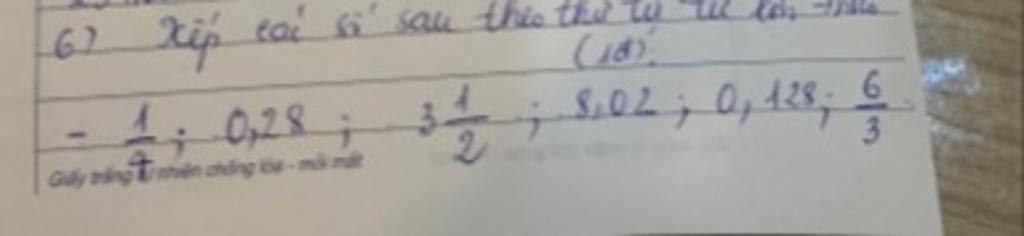 6) Xếp cái số sau theo thứ tự từ
(1đ).
- 1/4 ; 0,28 ; 3 1/2 ; 8,02 ; 0,128; 6/3
Giấy trắng tự nhiên chống lóa - mỏi mắt